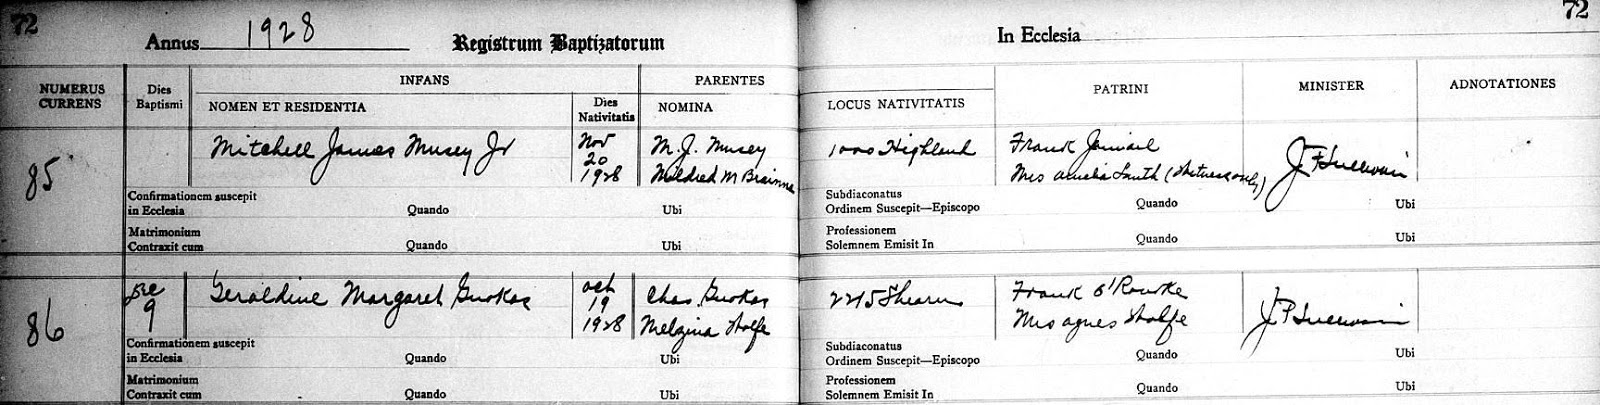 72
72
Annus 1928 Registrum Baptizatorum In Ecclesia
NUMERUS CURRENS
Dies Baptismi
INFANS
NOMEN ET RESIDENTIA
Dies Nativitatis
PARENTES
NOMINA
LOCUS NATIVITATIS
PATRINI
MINISTER
ADNOTATIONES
85
Mitchell James Musey Jr
Nov
20
1928
M. J. Musey
Mildred M
1000 Highland
Frank
Mrs Amelia Smith (Witness only)
Confirmationem suscepit
in Ecclesia Quando Ubi
Subdiaconatus
Ordinem Suscepit—Episcopo Quando Ubi
Matrimonium
Contraxit cum Quando Ubi
Professionem
Solemnem Emisit In Quando Ubi
86
Dec
9
Geraldine Margaret
Oct
19
1928
Chas
2215 Shearn
Frank O'Rourke
Mrs Agnes
Confirmationem suscepit
in Ecclesia Quando Ubi
Subdiaconatus
Ordinem Suscepit—Episcopo Quando Ubi
Matrimonium
Contraxit cum Quando Ubi
Professionem
Solemnem Emisit In Quando Ubi